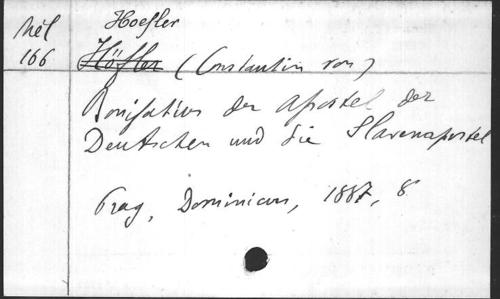 Mél
166
Hoefler
Höfler (Constantin von)
Bonifatius der Apostel der
Deutschen und die Slavenapostel
Prag, Dominicus, 1887, 8°